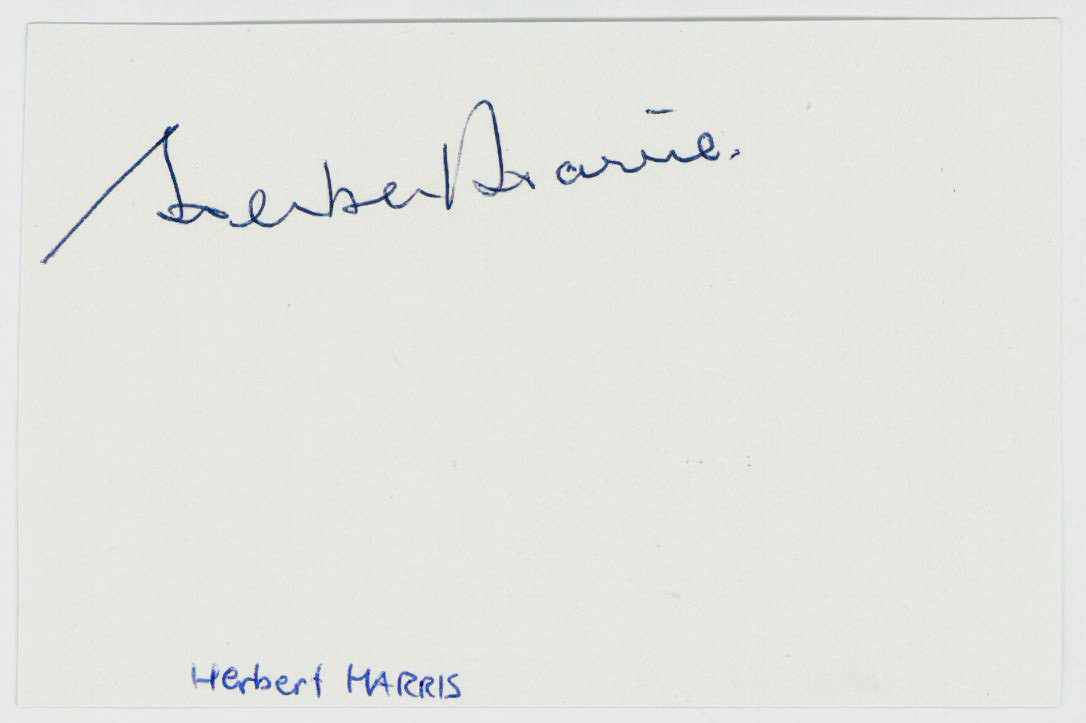 Herbert Harris.
Herbert HARRIS